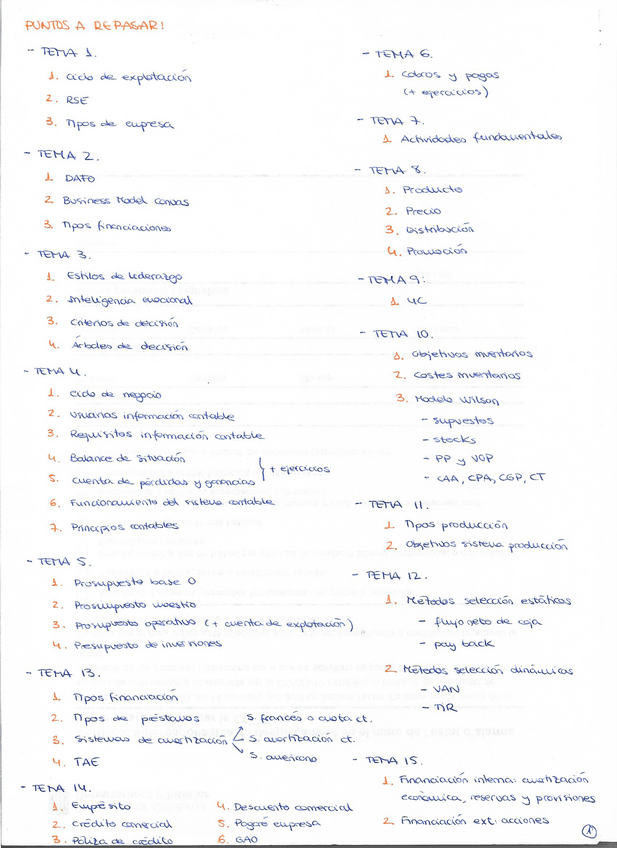 PUNTOS A REPASAR!
- TEMA 1.
1. Ciclo de explotación
2. RSE
3. Tipos de empresa
- TEMA 2.
1. DAFO
2. Business Model canvas
3. Tipos financiaciones
- TEMA 3.
1. Estilos de liderazgo
2. Inteligencia emocional
3. Criterios de decisión
4. Árboles de decisión
- TEMA 4.
1. Ciclo de negocio
2. Usuarios información contable
3. Requisitos información contable
4. Balance de situación
5. Cuenta de pérdidas y ganancias
+ ejercicios
6. Funcionamiento del sistema contable
7. Principios contables
- TEMA 5.
1. Presupuesto base 0
2. Presupuesto maestro
3. Presupuesto operativo (+ cuenta de explotación)
4. Presupuesto de inversiones
- TEMA 13.
1. Tipos financiación
2. Tipos de préstamos
3. Sistemas de amortización
S. francés o cuota ct.
S. amortización ct.
S. americano
4. TAE
- TEMA 14.
1. Empréstito
2. Crédito comercial
3. Póliza de crédito
4. Descuento comercial
5. Pagaré empresa
6. GAO
- TEMA 6.
1. Cobros y pagos
(+ ejercicios)
- TEMA 7.
1. Actividades fundamentales
- TEMA 8.
1. Producto
2. Precio
3. Distribución
4. Promoción
- TEMA 9:
1. UC
- TEMA 10.
1. Objetivos inventarios
2. Costes inventarios
3. Modelo Wilson
- supuestos
- stocks
- PP y VOP
- CAA, CPA, CGP, CT
- TEMA 11.
1. Tipos producción
2. Objetivos sistema producción
- TEMA 12.
1. Métodos selección estáticos
- flujo neto de caja
- pay back
2. Métodos selección dinámicos
- VAN
- TIR
- TEMA 15.
1. Financiación interna: amortización
económica, reservas y provisiones
2. Financiación ext: acciones
1